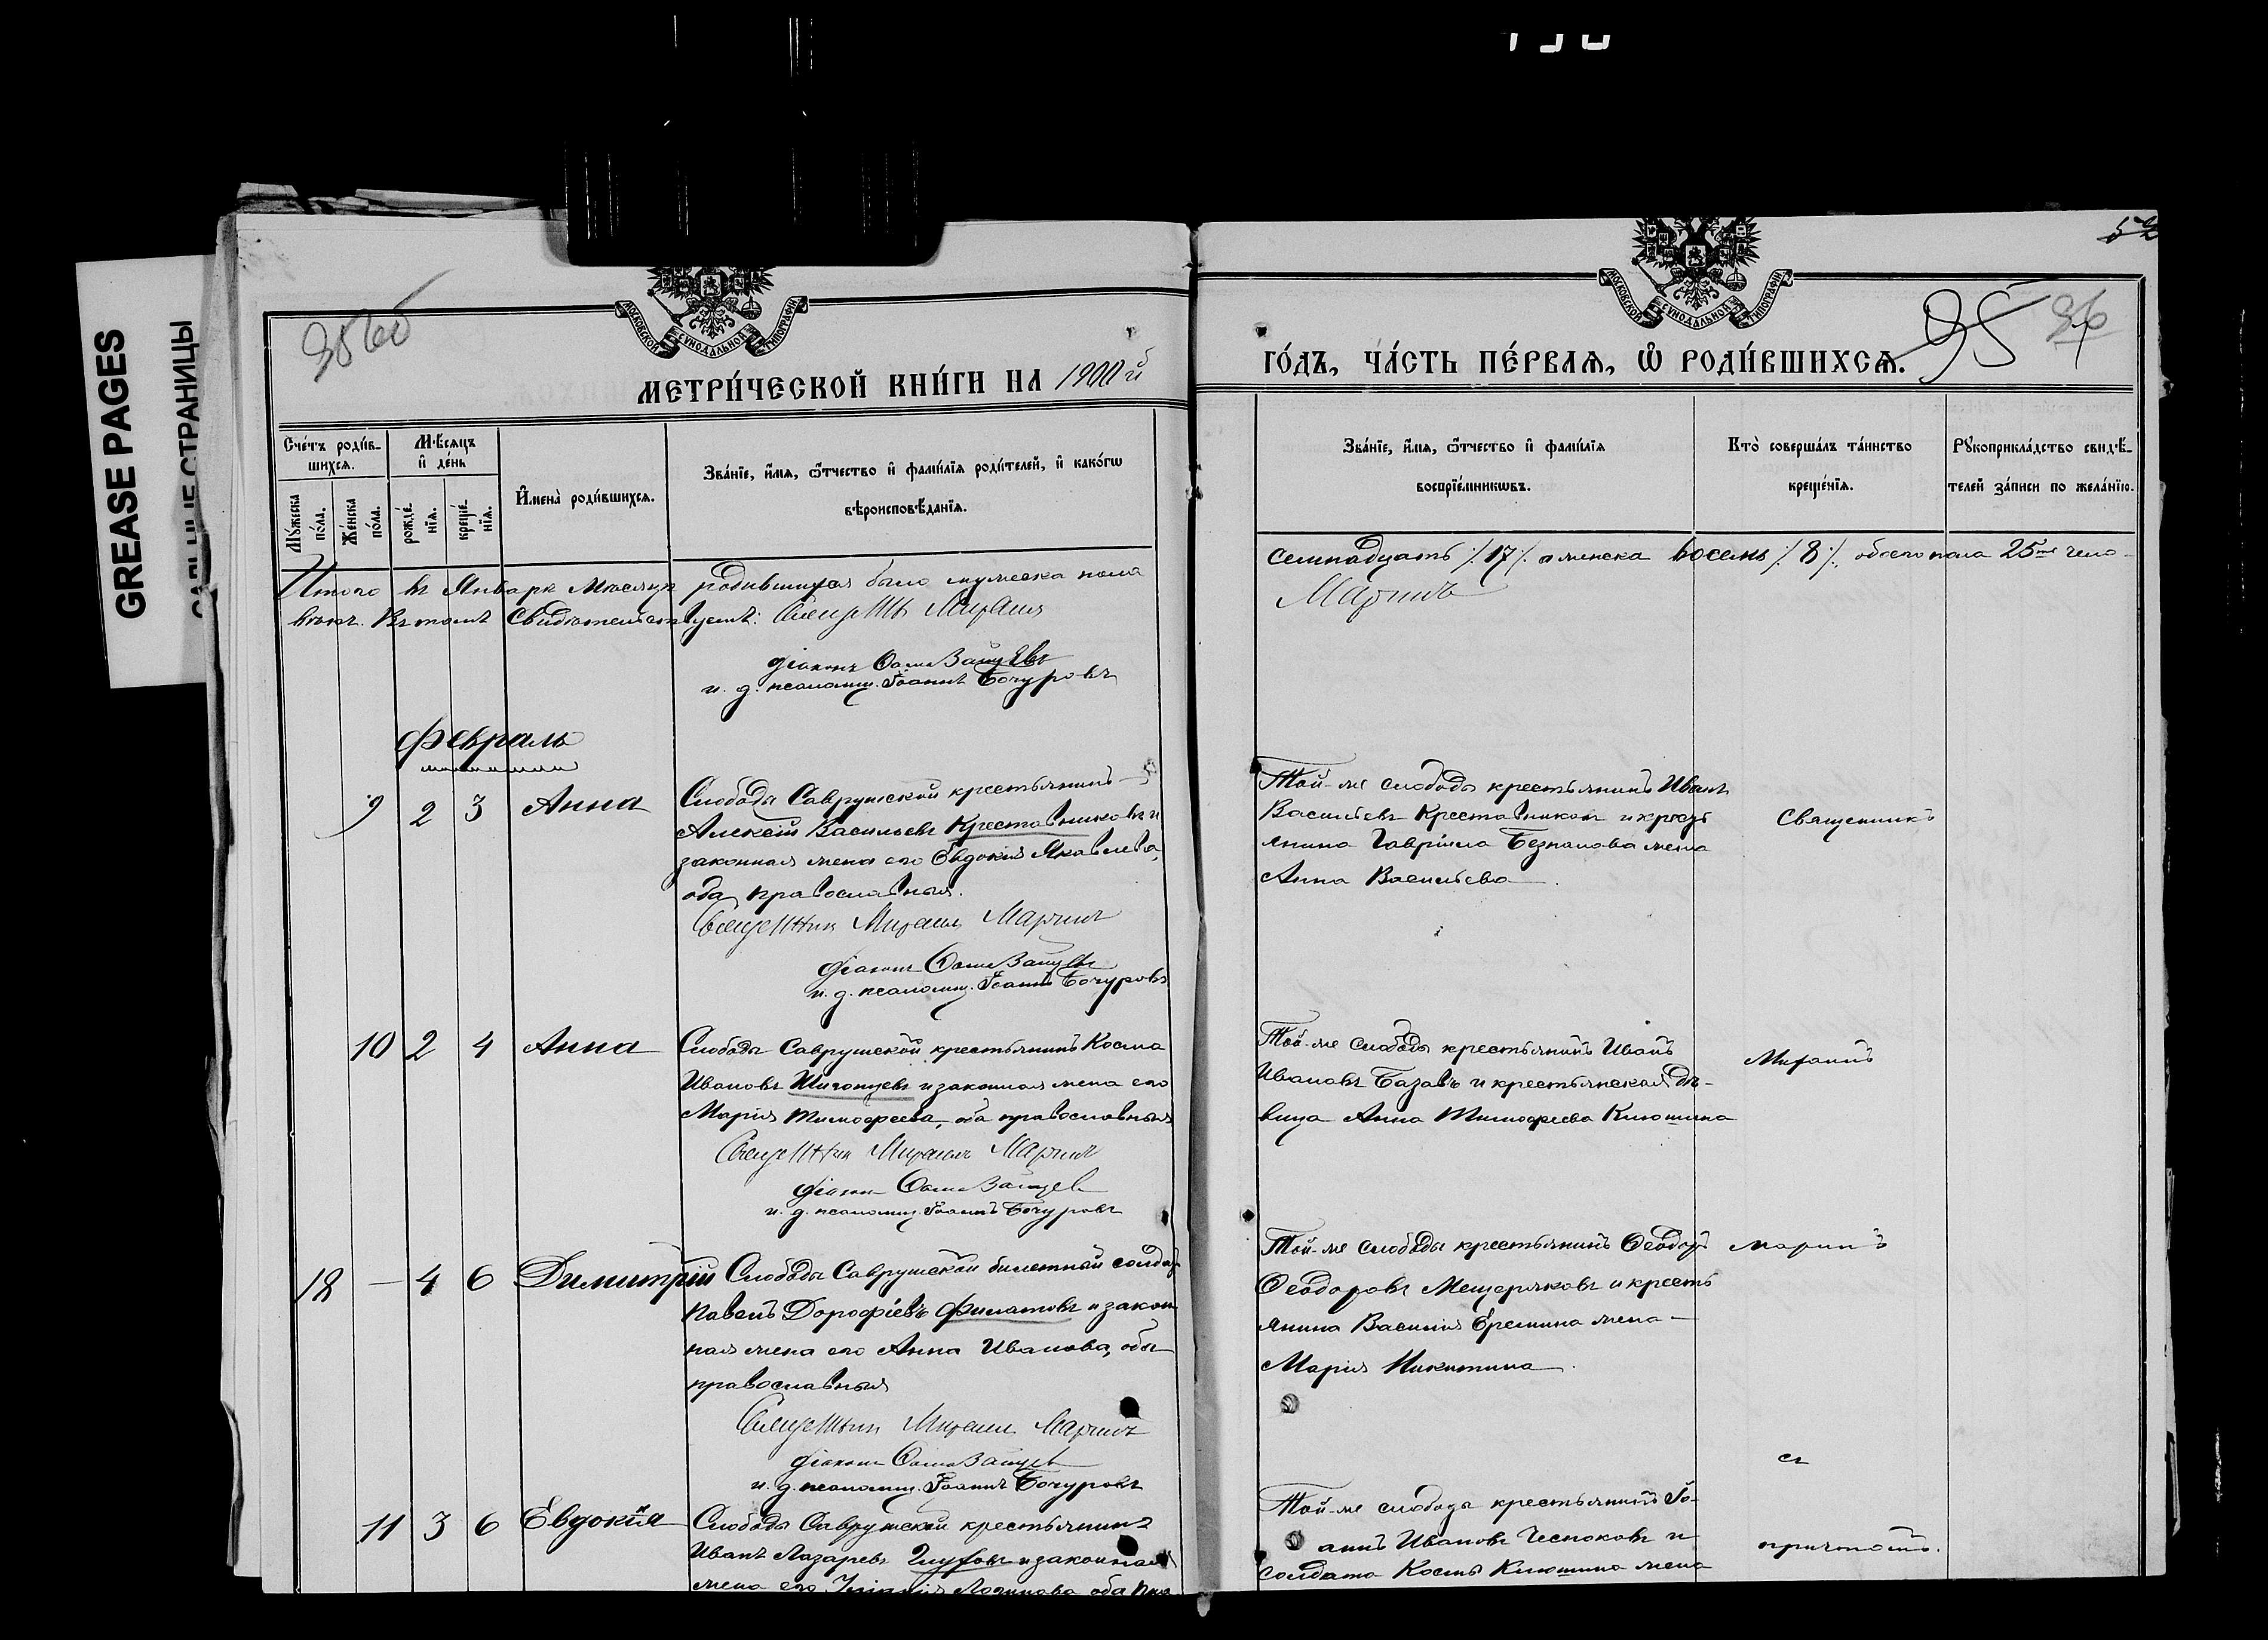 GREASE PAGES
САЛЬНЫЕ СТРАНИЦЫ
52
95 об
95 96
МОСКОВСКОЙ СѴНОДАЛЬНОЙ ТИПОГРАФІИ
МОСКОВСКОЙ СѴНОДАЛЬНОЙ ТИПОГРАФІИ
МЕТРИ́ЧЕСКОЙ КНИ́ГИ НА 1900 й
ГО́ДЪ, ЧА́СТЬ ПЕ́РВАЯ, Ѡ҆ РОДИ́ВШИХСЯ.
Сче́тъ роди́в-
шихся.
Мѣ́сяцъ
и҆ де́нь
Му́жеска
по́ла.
Же́нска
по́ла.
рожде́-
нїя.
креще́-
нїя.
И҆мена̀ роди́вшихся.
Зва́нїе, и҆́мя, ѻ҆́тчество и҆ фами́лїя роди́телей, и҆ како́гѡ
вѣроисповѣ́данїя.
Зва́нїе, и҆́мя, ѻ҆́тчество и҆ фами́лїя
воспрїе́мникѡвъ.
Кто̀ соверша́лъ та́инство
креще́нїя.
Рꙋкоприкла́дство свидѣ́-
телей за́писи по жела́нїю.
Итого въ Январѣ Мѣсяцѣ родившихся было мужеска пола
семнадцать /.17./. а женска восемь /.8./., обоего пола 25ть чело-
вѣкъ. Въ томъ свидѣтельствуемъ: Священникъ Михаилъ
Маринъ
Діаконъ Ѳома Зайцевъ
и. д. псаломщ. Іоаннъ Бочуровъ
Февраль
9 2 3 Анна
Слободы Саврушской крестьянинъ
Алексій Васильевъ Крестовниковъ и
законная жена его Евдокія Яковлева,
оба православныя.
Священникъ Михаилъ Маринъ
Діаконъ Ѳома Зайцевъ
и. д. псаломщ. Іоаннъ Бочуровъ
Той-же слободы крестьянинъ Иванъ
Васильевъ Крестовниковъ и кресть
янина Гавріила Безпалова жена
Анна Васильева.
Священникъ
10 2 4 Анна
Слободы Саврушской крестьянинъ Косма
Ивановъ Шигонцевъ и законная жена его
Марія Тимофеева, оба православныя
Священникъ Михаилъ Маринъ
Діаконъ Ѳома Зайцев
и. д. псаломщ. Іоаннъ Бочуровъ
Той-же слободы крестьянинъ Иванъ
Ивановъ Базавъ и крестьянская дѣ-
вица Анна Тимофеева Клюшина
Михаилъ
18 — 4 6 Димитрій
Слободы Саврушской билетный солдатъ
Павелъ Дорофіевъ Филатовъ и закон
ная жена его Анна Иванова, оба
православныя
Священникъ Михаилъ Маринъ
Діаконъ Ѳома Зайцев
и. д. псаломщ. Іоаннъ Бочуровъ
Той-же слободы крестьянинъ Ѳеодоръ
Ѳеодоровъ Мещеряковъ и кресть
янина Василія Еремина жена
Марія Никитина.
Маринъ
съ
11 3 6 Евдокія
Слободы Саврушской крестьянинъ
Иванъ Лазаревъ Глуховъ и законная
жена его Логинова оба пра
Той-же слободы крестьянинъ Іо-
аннъ Ивановъ Чесноковъ и
солдата Космы Клюшина жена
причтомъ.